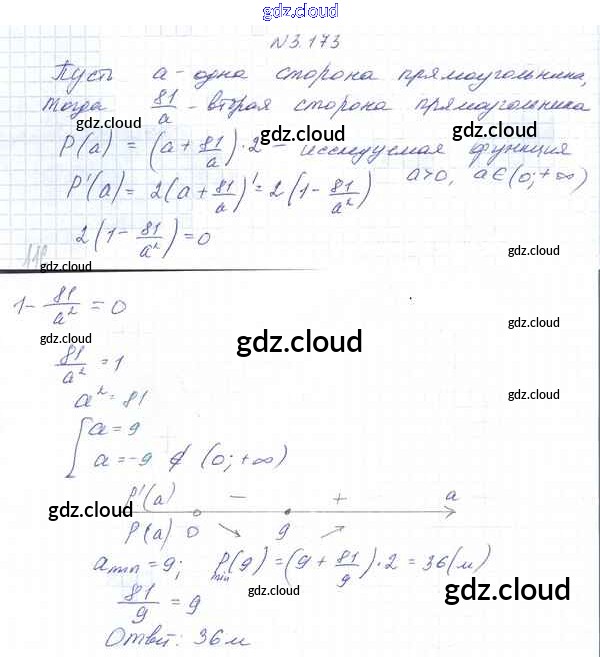 gdz.cloud
N 3.173
Пусть a - одна сторона прямоугольника,
тогда 81/a - вторая сторона прямоугольника
gdz.cloud gdz.cloud
P(a) = (a + 81/a) · 2 - исследуемая функция
gdz.cloud
P'(a) = 2(a + 81/a)' = 2(1 - 81/a²) a>0, a∈(0; +∞)
2(1 - 81/a²) = 0
gdz.cloud gdz.cloud
1 - 81/a² = 0
gdz.cloud
gdz.cloud gdz.cloud
81/a² = 1
a² = 81
gdz.cloud
[ a = 9
a = -9 ∉ (0; +∞)
P'(a) - + a
gdz.cloud gdz.cloud
P(a) 0 ↘ 9 ↗
a min = 9; P min (9) = (9 + 81/9) · 2 = 36(м)
81/9 = 9
gdz.cloud gdz.cloud
Ответ: 36 м